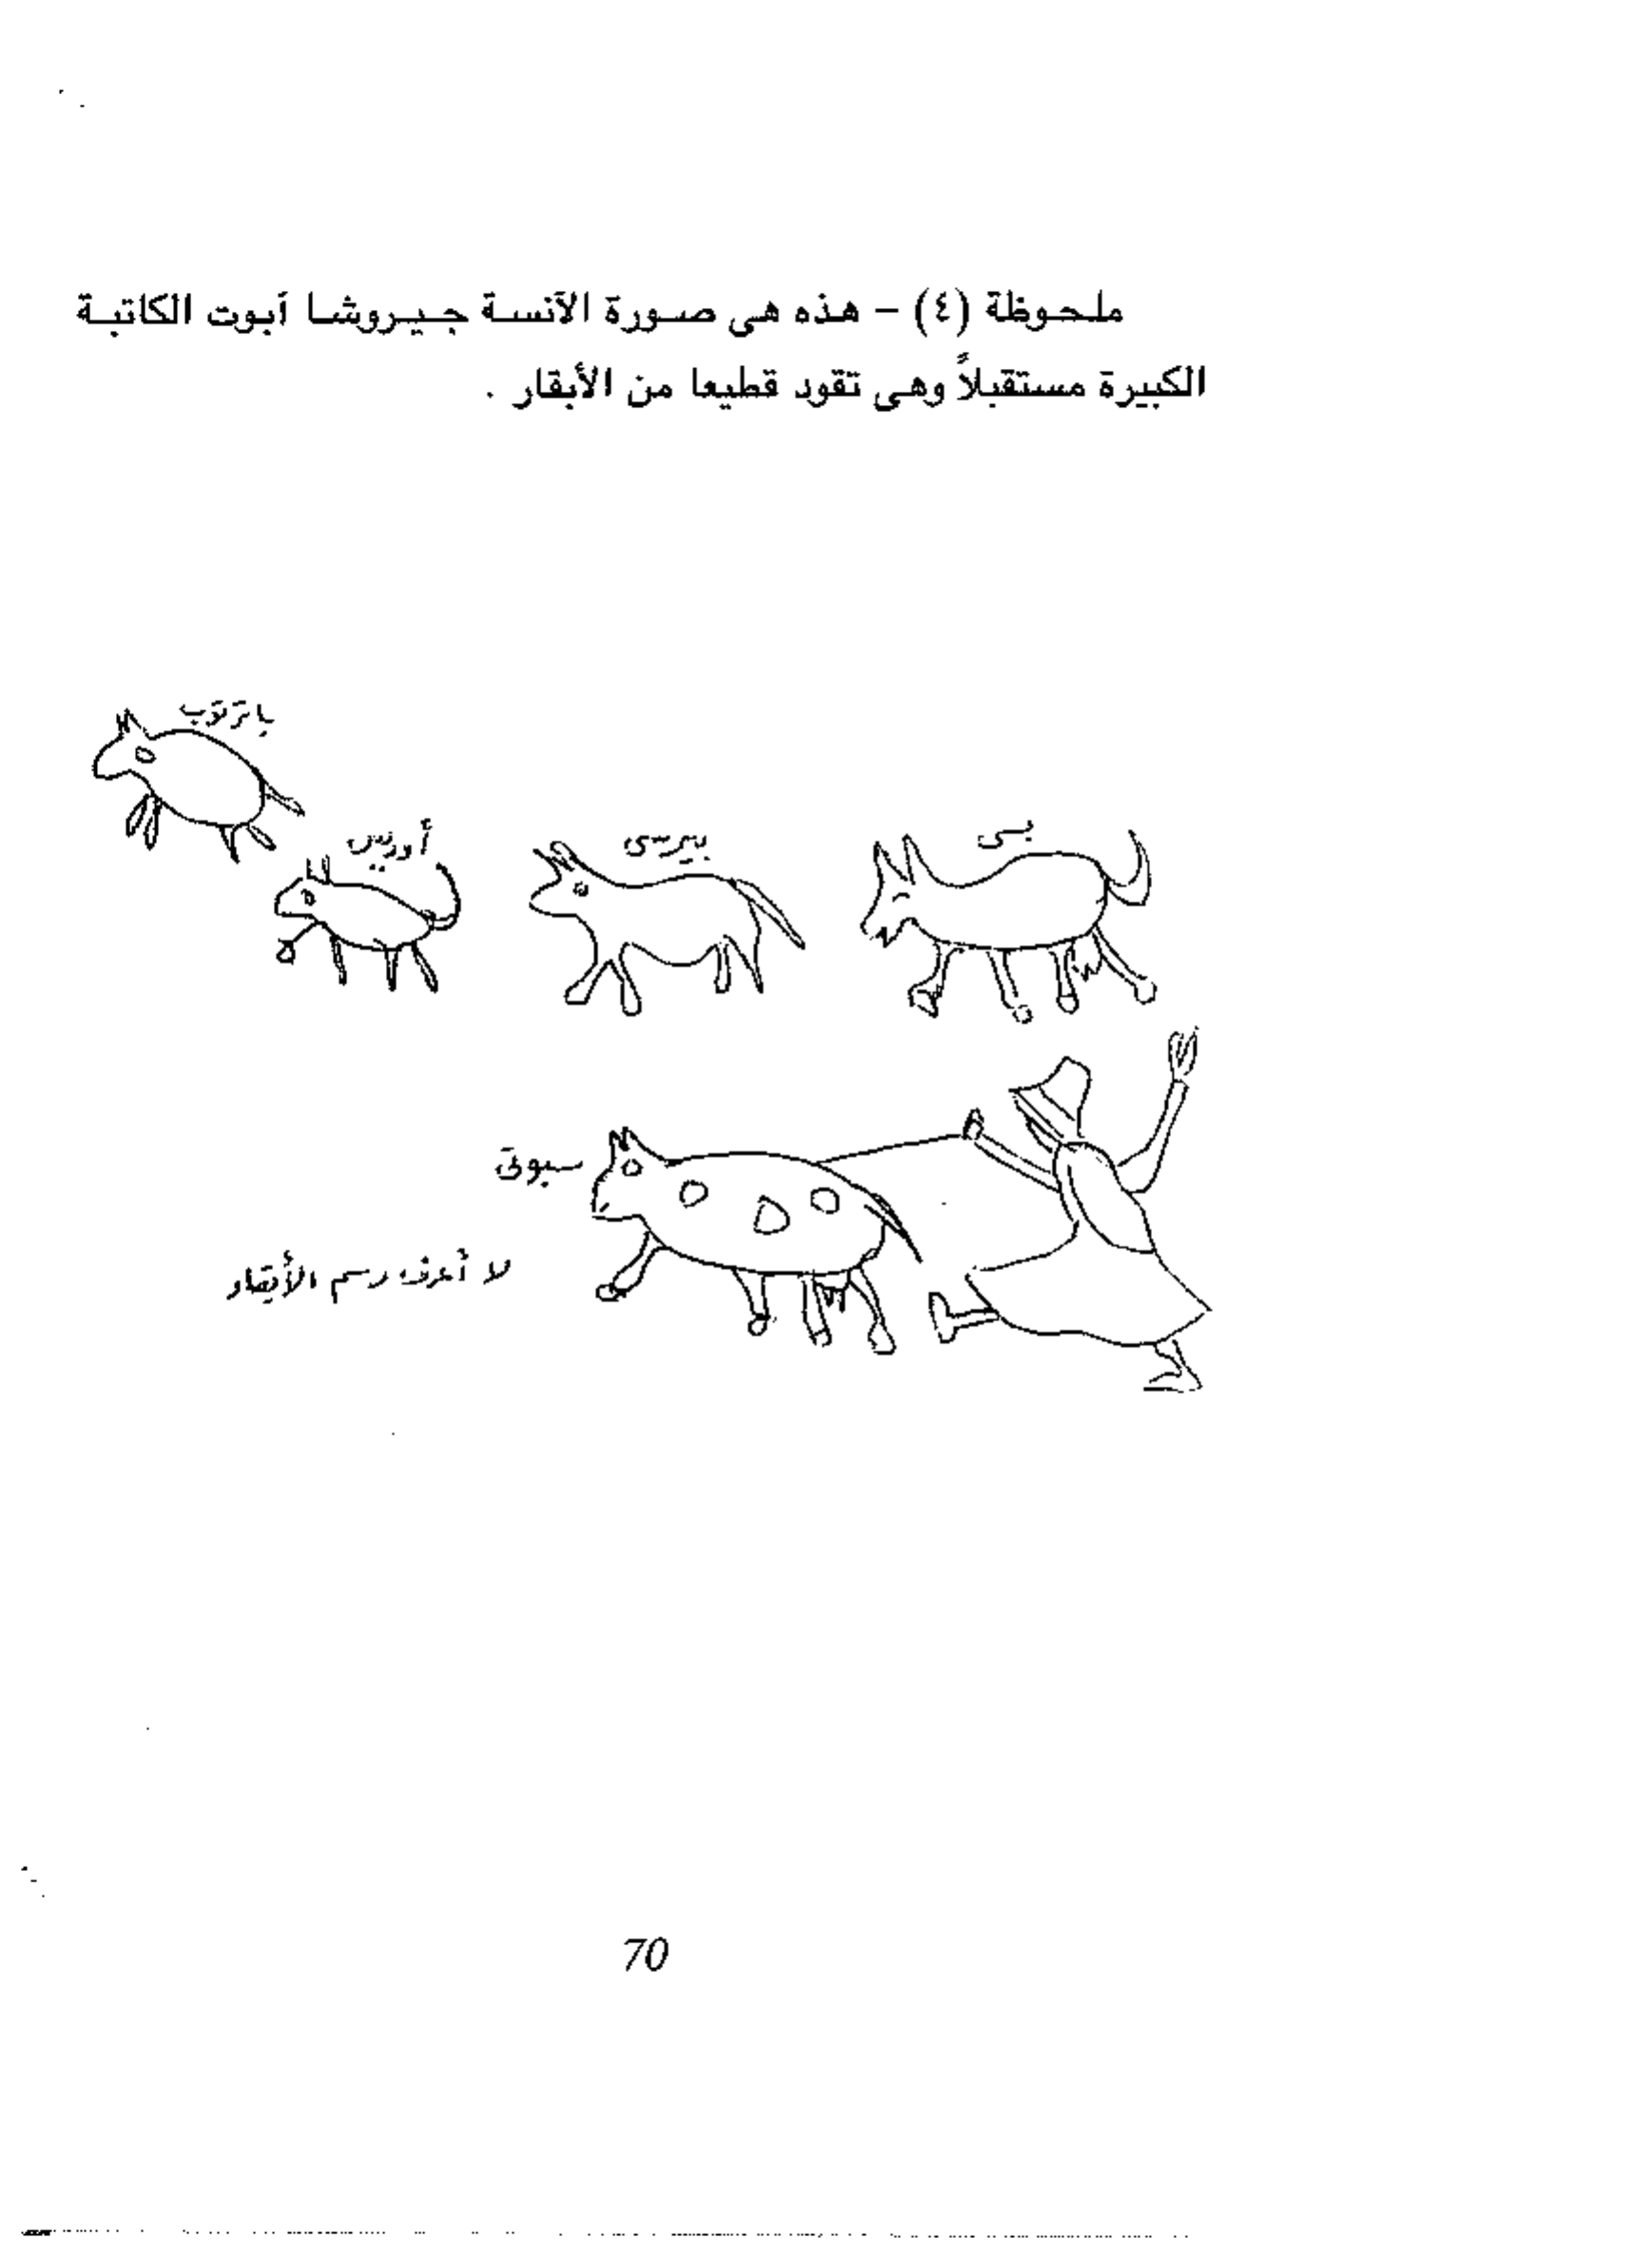 ملحوظة (٤) - هذه هى صورة الآنسة جيروشا آبوت الكاتبة
الكبيرة مستقبلاً وهى تقود قطيعا من الأبقار .
بى
بيرسى
سبوتى
لا أعرف رسم الأبقار
70